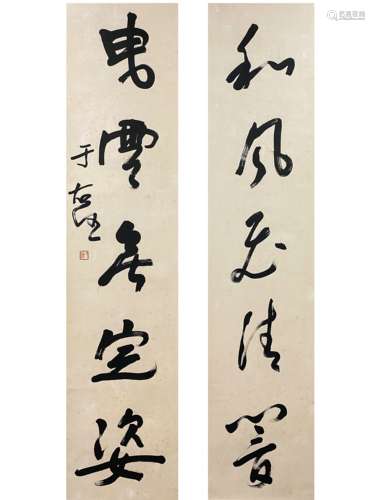 和風飛清響
曳雲無定姿
于右任